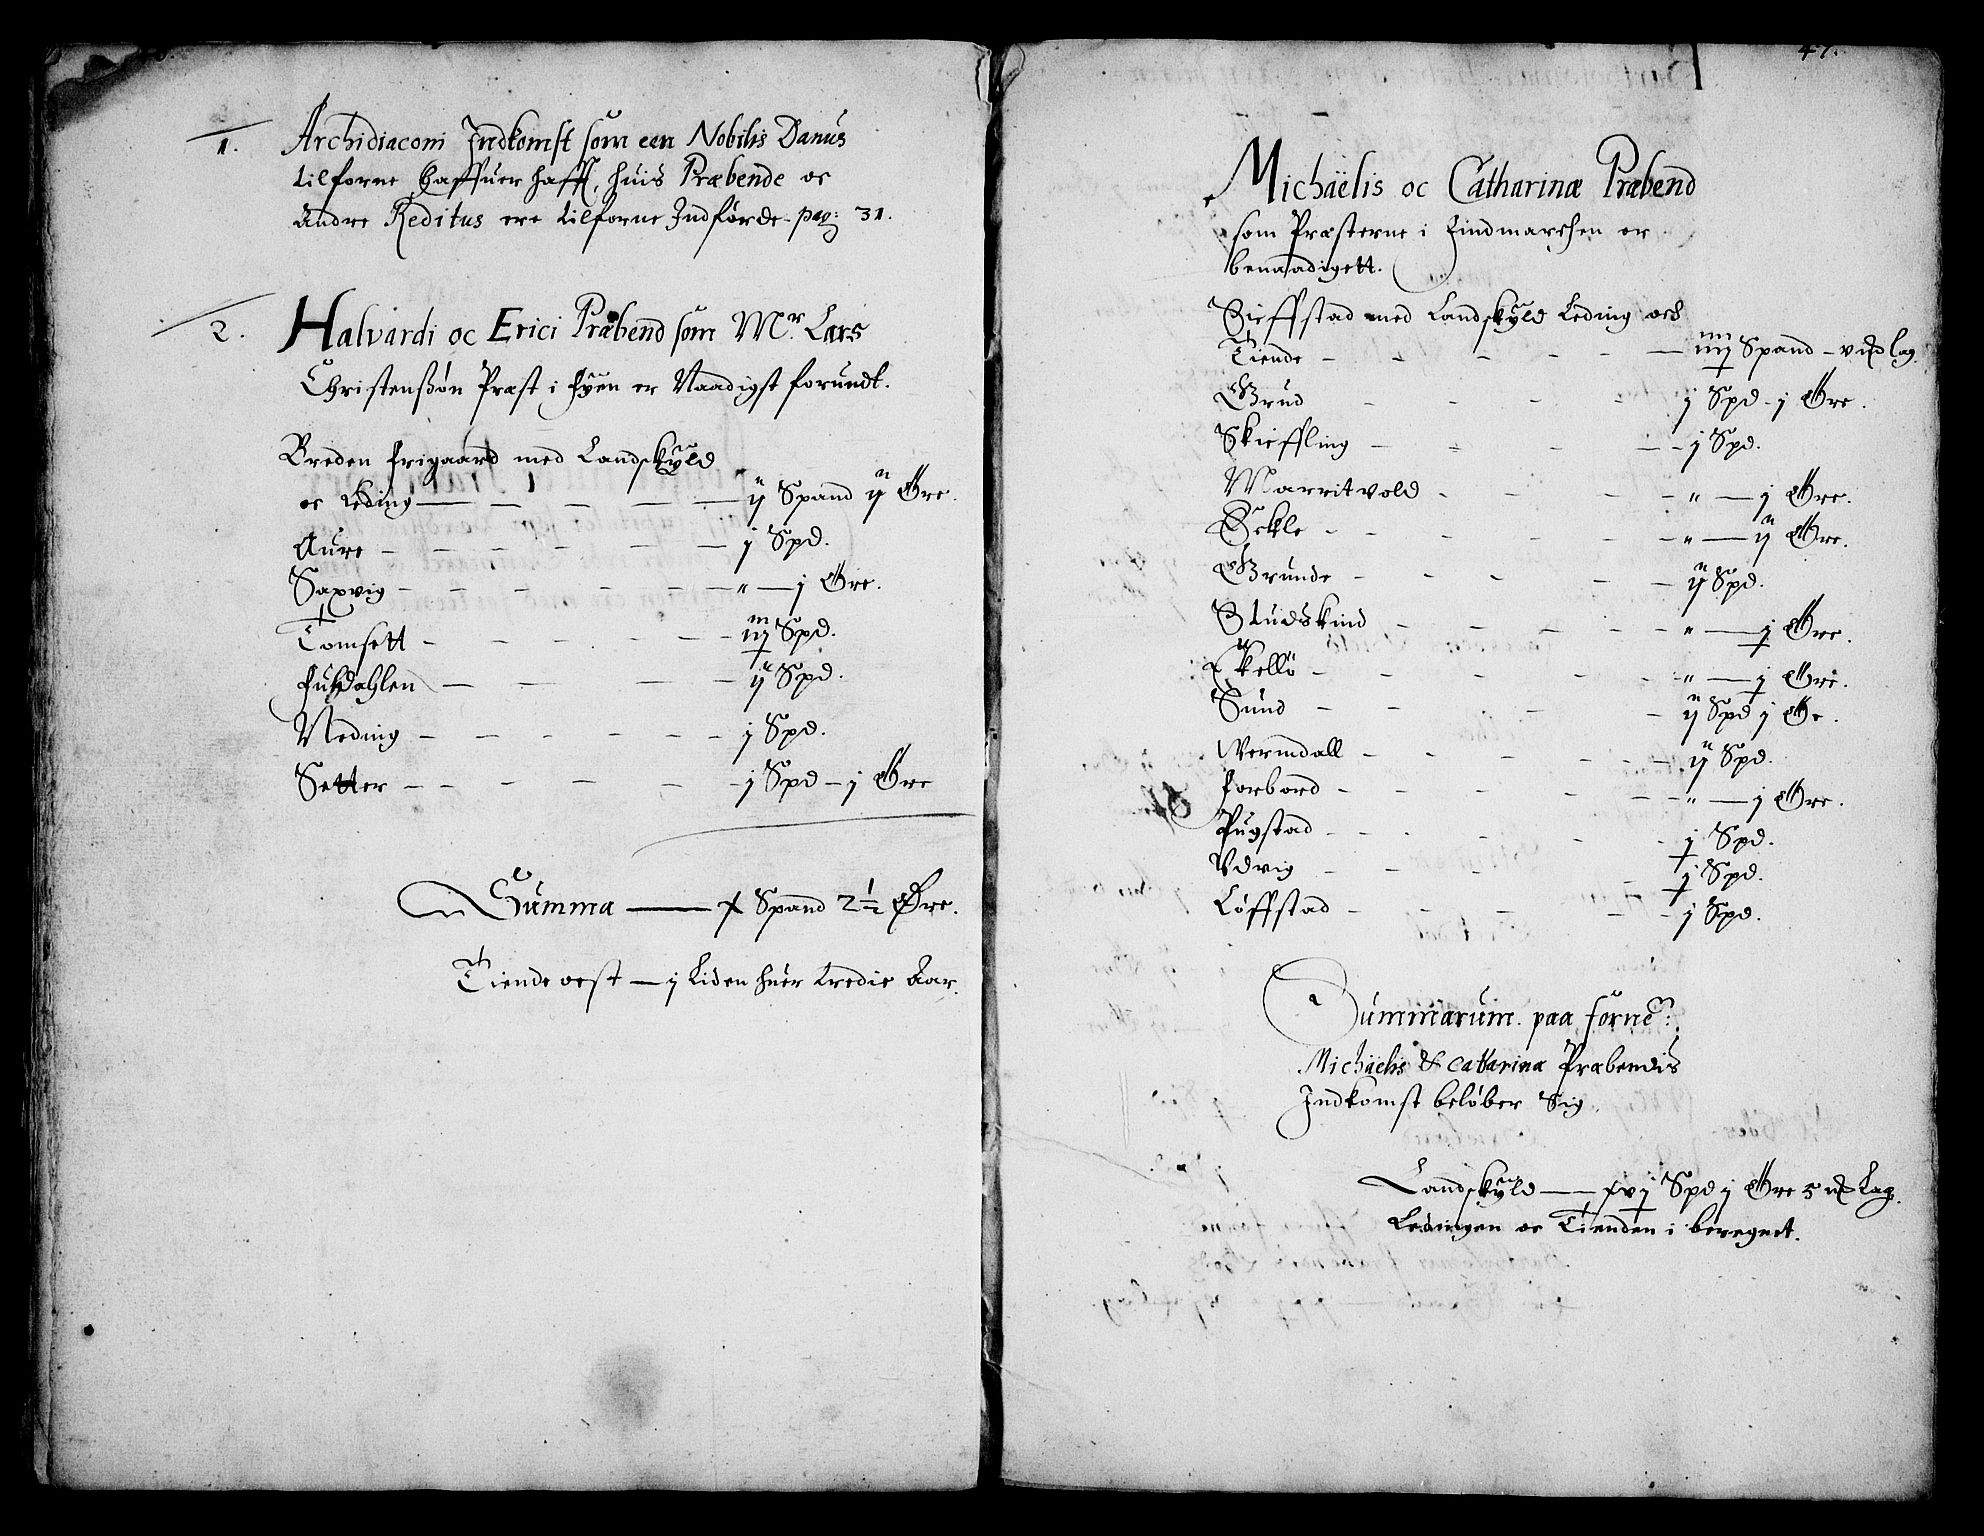 1. Archidiaconi Indkomst som een Nobilis Danus
tilforne haffuer hafft, huis Præbende oc
Andre Reditus ere tilforne Indförde - pag: 31.
2. Halvardi oc Erici Præbend som Mr. Lars
Christenßøn Præst i Hÿen er Naadigst forundt.
Breden frigaard med Landskÿld
oc Leding — ij Spand ij Öre.
Aure — j Spd.
Saxvig — " — j Öre.
Tomsett — iij Spd.
— ij Spd.
Neding — j Spd.
Setter — j Spd — j Öre
Summa — x Spand 2½ Øre.
Tiende oest — j Liden huer tredie Aar.
47.
Michaëlis oc Catharinæ Præbend
som Præsterne i Findmarchen er
benaadigett.
Sieffstad med Landskÿld Leding och
Tiende — iiij Spand — v
Grud — j Spd — j Öre.
Skieffling — j Spd.
Marritvold — " — j Öre.
Öekle — " — ij Öre.
Grunde — ij Spd.
Studskind — " — j Öre.
— " — j Öre.
Sund — ij Spd j Ö
Wermdall — ij Spd.
Forbord — " — j Öre.
Pugstad — j Spd.
Vdvig — j Spd.
Løffstad — j Spd.
Summarum paa forne:
Michaëlis & Catharina Præbendis
Indkomst beløber Sig,
Landskÿld — xvj Spd j Öre 5
Ledingen oc Tienden i beregnet.